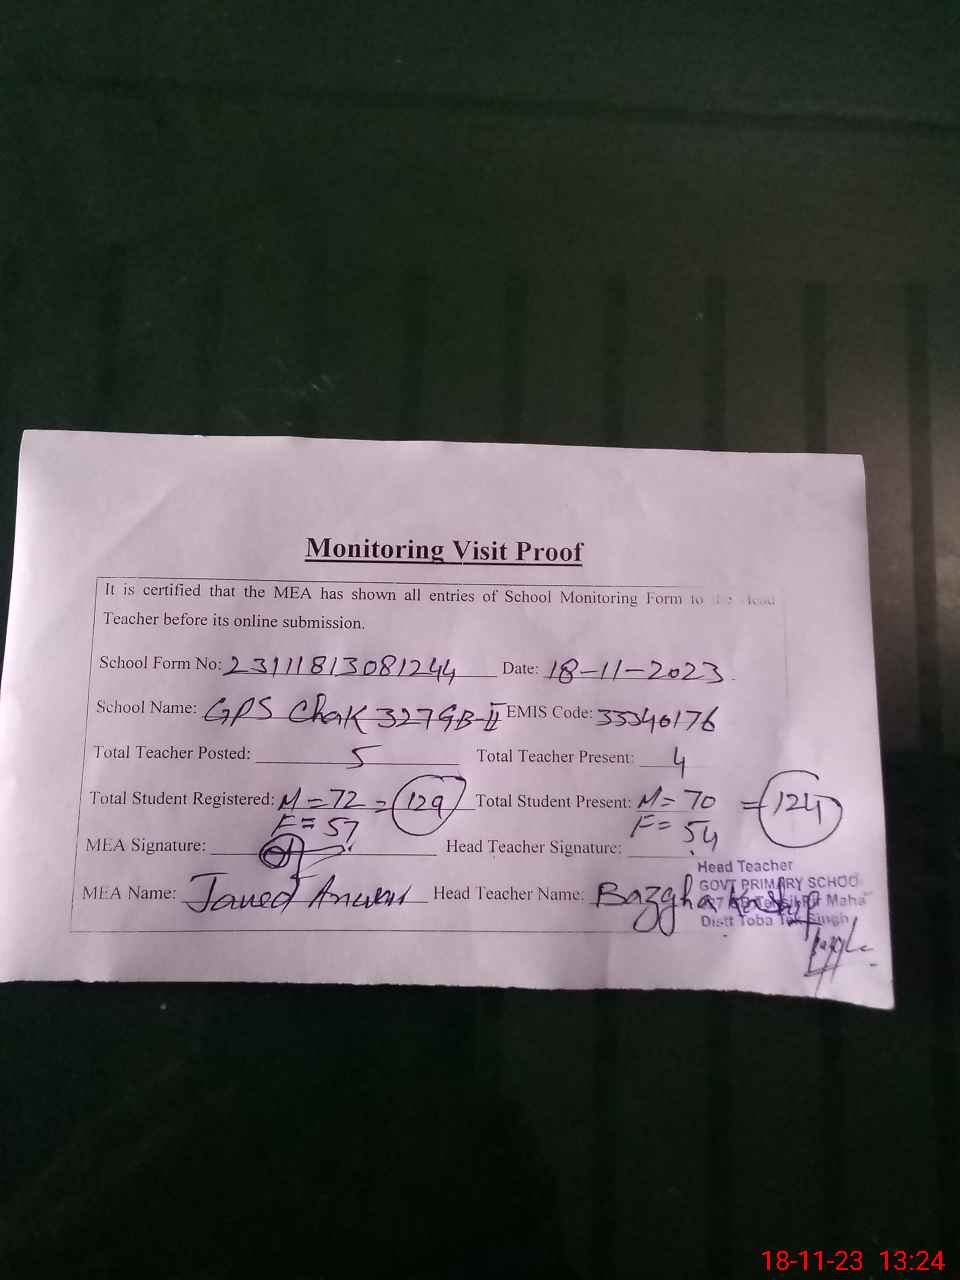 Monitoring Visit Proof
It is certified that the MEA has shown all entries of School Monitoring Form to the Head
Teacher before its online submission.
School Form No: 23111813081244 Date: 18-11-2023
School Name: GPS Chak 327GB-II EMIS Code: 33340176
Total Teacher Posted: 5 Total Teacher Present: 4
Total Student Registered: M = 72 = 129 Total Student Present: M = 70 = 124
F = 57 F = 54
MEA Signature: Head Teacher Signature:
Head Teacher
GOVT PRIMARY SCHOO
MEA Name: Javed Anwar Head Teacher Name:
Distt Toba Tek Singh
18-11-23 13:24